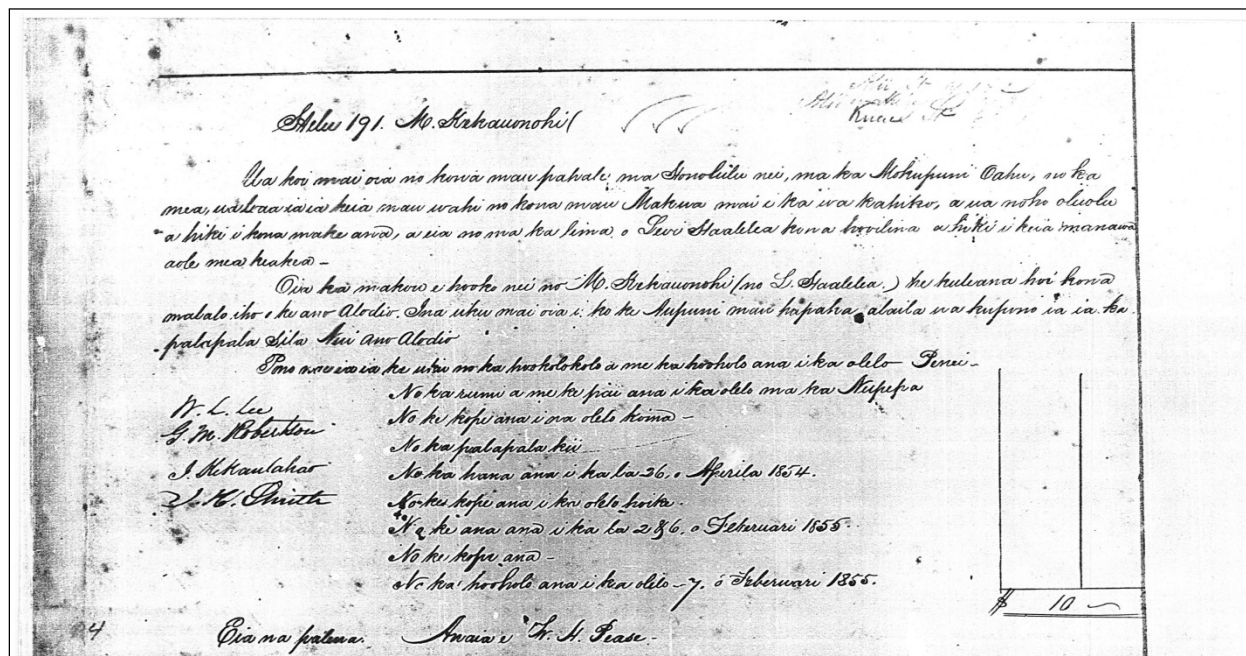 Helu 191. M. Kekauonohi
Ua koi mai oia no kona mau pahale ma Honolulu nei, ma ka Mokupuni Oahu, no ka
mea, ua loaa iaia keia mau wahi no kona mau Makua mai i ka wa kahiko, a ua noho oluolu
a hiki i kona make ana, a eia no ma ka lima o Levi Haalelea kona hooilina a hiki i keia manawa
aole mea keakea -
Oia ka makou e hooko nei no M. Kekauonohi (no L. Haalelea.) he kuleana hoi kona
malalo iho o ke ano Alodio. Ina uku mai oia i ko ke Aupuni mau hapaha, alaila ua kupono ia ia ka
palapala Sila Nui Ano Alodio
Pono nae iaia ke uku no ka hookolokolo a me ka hooholo ana i ka olelo Penei -
No ka rumi a me ke pai ana i ka olelo ma ka Nupepa
W. L. Lee No ke kope ana i na olelo koina -
G. M. Robertson No ka palapala kii
J. Kekaulahao No ka hana ana i ka la 26. o Aperila 1854
J. H. Smith No ke kope ana i ka olelo hoike.
No ke ana ana i ka la 2 & 6. o Feberuari 1855.
No ke kope ana -
No ka hooholo ana i ka olelo - 7. o Feberuari 1855.
$ 10
4 Eia na palena. Anaia e W. H. Pease -